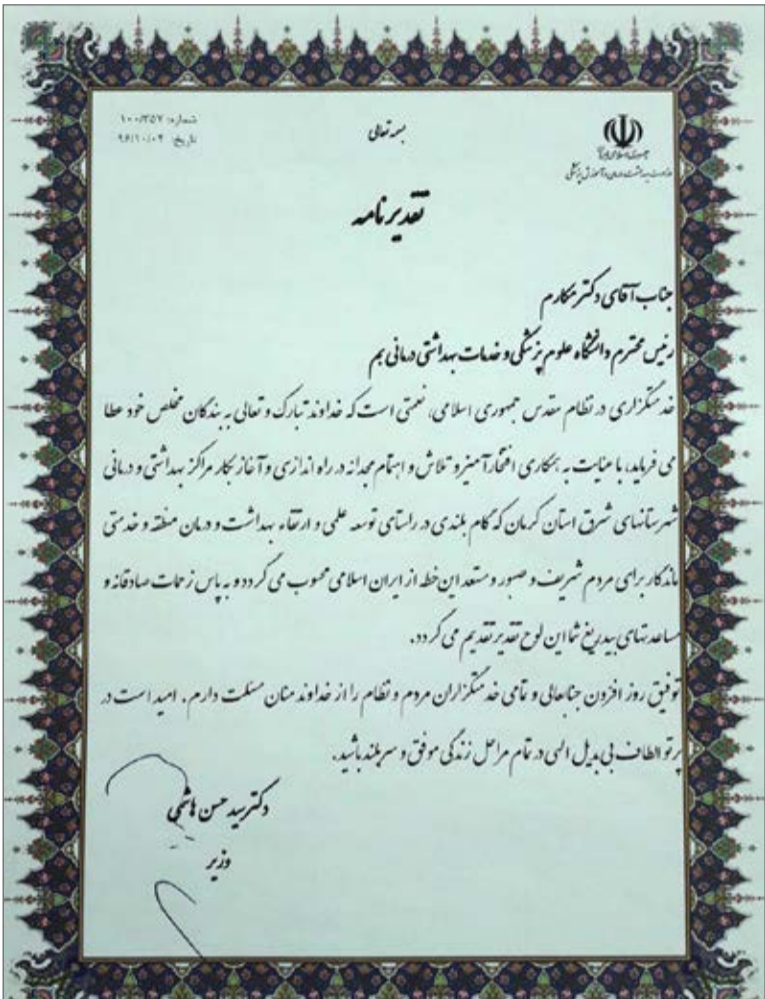 شماره: ۱۰۰/۳۵۷
تاریخ: ۹۶/۱۰/۰۴
بسمه تعالی
جمهوری اسلامی ایران
وزارت بهداشت، درمان و آموزش پزشکی
تقدیرنامه
جناب آقای دکتر مکارم
رئیس محترم دانشگاه علوم پزشکی و خدمات بهداشتی درمانی بم
خدمتگزاری در نظام مقدس جمهوری اسلامی، نعمتی است که خداوند تبارک و تعالی به بندگان مخلص خود عطا
می فرماید، با عنایت به همکاری افتخارآمیز و تلاش و اهتمام مجدانه در راه اندازی و آغاز بکار مراکز بهداشتی و درمانی
شهرستانهای شرق استان کرمان که گام بلندی در راستای توسعه علمی و ارتقاء بهداشت و درمان منطقه و خدمتی
ماندگار برای مردم شریف و صبور و مستعد این خطه از ایران اسلامی محسوب می گردد و به پاس زحمات صادقانه و
مساعدتهای بیدریغ شما این لوح تقدیر تقدیم می گردد.
توفیق روز افزون جنابعالی و تمامی خدمتگزاران مردم و نظام را از خداوند منان مسئلت دارم. امید است در
پرتو الطاف بی بدیل الهی در تمام مراحل زندگی موفق و سربلند باشید.
دکتر سید حسن هاشمی
وزیر